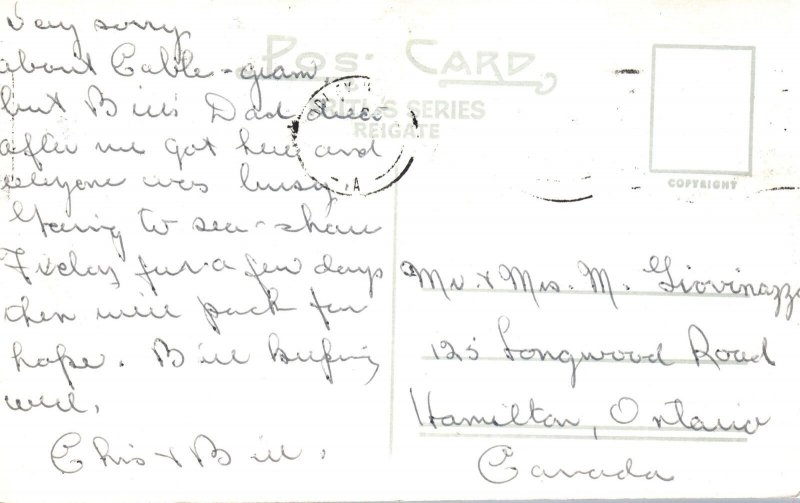 Very sorry
about Cable-gram,
but Bill's Dad died
after we got here and
everyone was busy.
Going to sea-shore
Friday for a few days
then will pack for
hope. Bill keeping
well.
Chris & Bill.
POST CARD
SERIES
REIGATE
A
COPYRIGHT
Mr. & Mrs. M. Giovinazzo
125 Longwood Road
Hamilton, Ontario
Canada